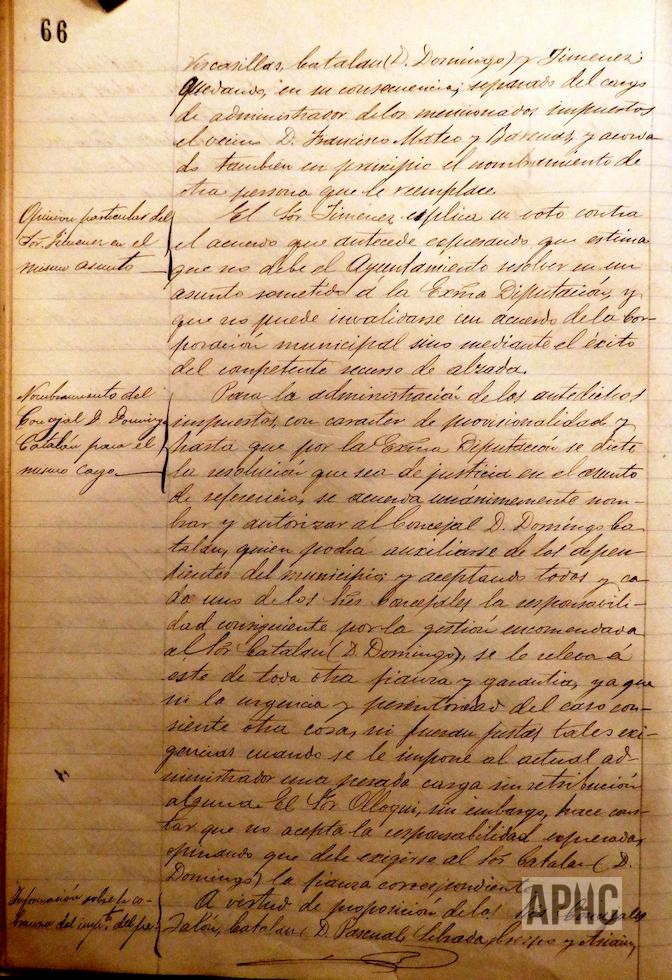 66
Vercasillas, Catalan (D. Domingo) y Jimenez;
quedando, en su consecuencia, separado del cargo
de administrador de los mencionados impuestos
el vecino D. Francisco Mateo y Bascuas, y acorda
do tambien en principio el nombramiento de
otra persona que le reemplace.
Opinion particular del
Sor. Jimenez en el
mismo asunto
El Sor Jimenez esplica su voto contra
el acuerdo que antecede espresando que estima
que no debe el Ayuntamiento resolver en un
asunto sometido á la Exma Diputacion, y
que no puede invalidarse un acuerdo de la Cor-
poración municipal sino mediante el éxito
del competente recurso de alzada.
Nombramiento del
Concejal D. Domingo
Catalán para el
mismo cargo
Para la administración de los antedichos
impuestos, con caracter de provisionalidad y
hasta que por la Exma Diputación se dicte
la resolución que sea de justicia en el asunto
de referencia, se acuerda unánimemente nom-
brar y autorizar al Concejal D. Domingo Ca-
talan, quien podrá auxiliarse de los depen-
dientes del municipio; y aceptando todos y ca-
da uno de los Sres Concejales la responsabili-
dad consiguiente por la gestión encomendada
al Sor Catalan (D. Domingo), se le releva á
éste de toda otra fianza y garantia, ya que
ni la urgencia y perentoriedad del caso con-
siente otra cosa, ni fueran justas tales exi-
gencias cuando se le impone al actual ad-
ministrador una pesada carga sin retribución
alguna. El Sor Olloqui, sin embargo, hace cons-
tar que no acepta la responsabilidad espresada,
opinando que debe exigirse al Sor Catalan (D.
Domingo) la fianza correspondiente
Información sobre la co-
branza del impto. del
A virtud de proposición de los Sres Concejales
Falcón, Catalan (D. Pascual), Crespo y
APHC